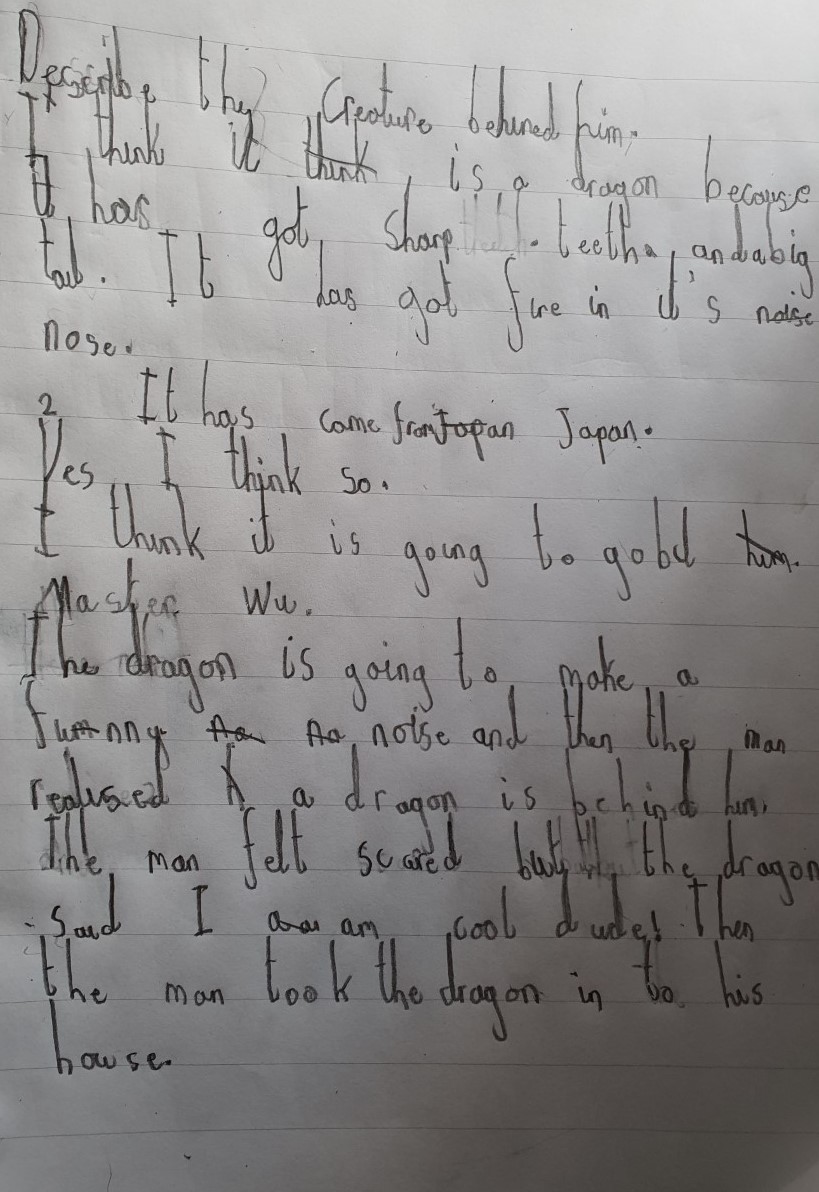 Describe the Creature behined him.
I think it think is a dragon because
It has got sharp teeth and a big
tail. It has got fire in it's noise
nose.
2 It has come from Japan Japan.
Yes I think so.
I think it is going to gobl him.
Master Wu.
The dragon is going to make a
funny noise and then the man
realised a dragon is behind him.
The man felt scared but the dragon
said I am cool dude! Then
the man took the dragon in to his
howse.